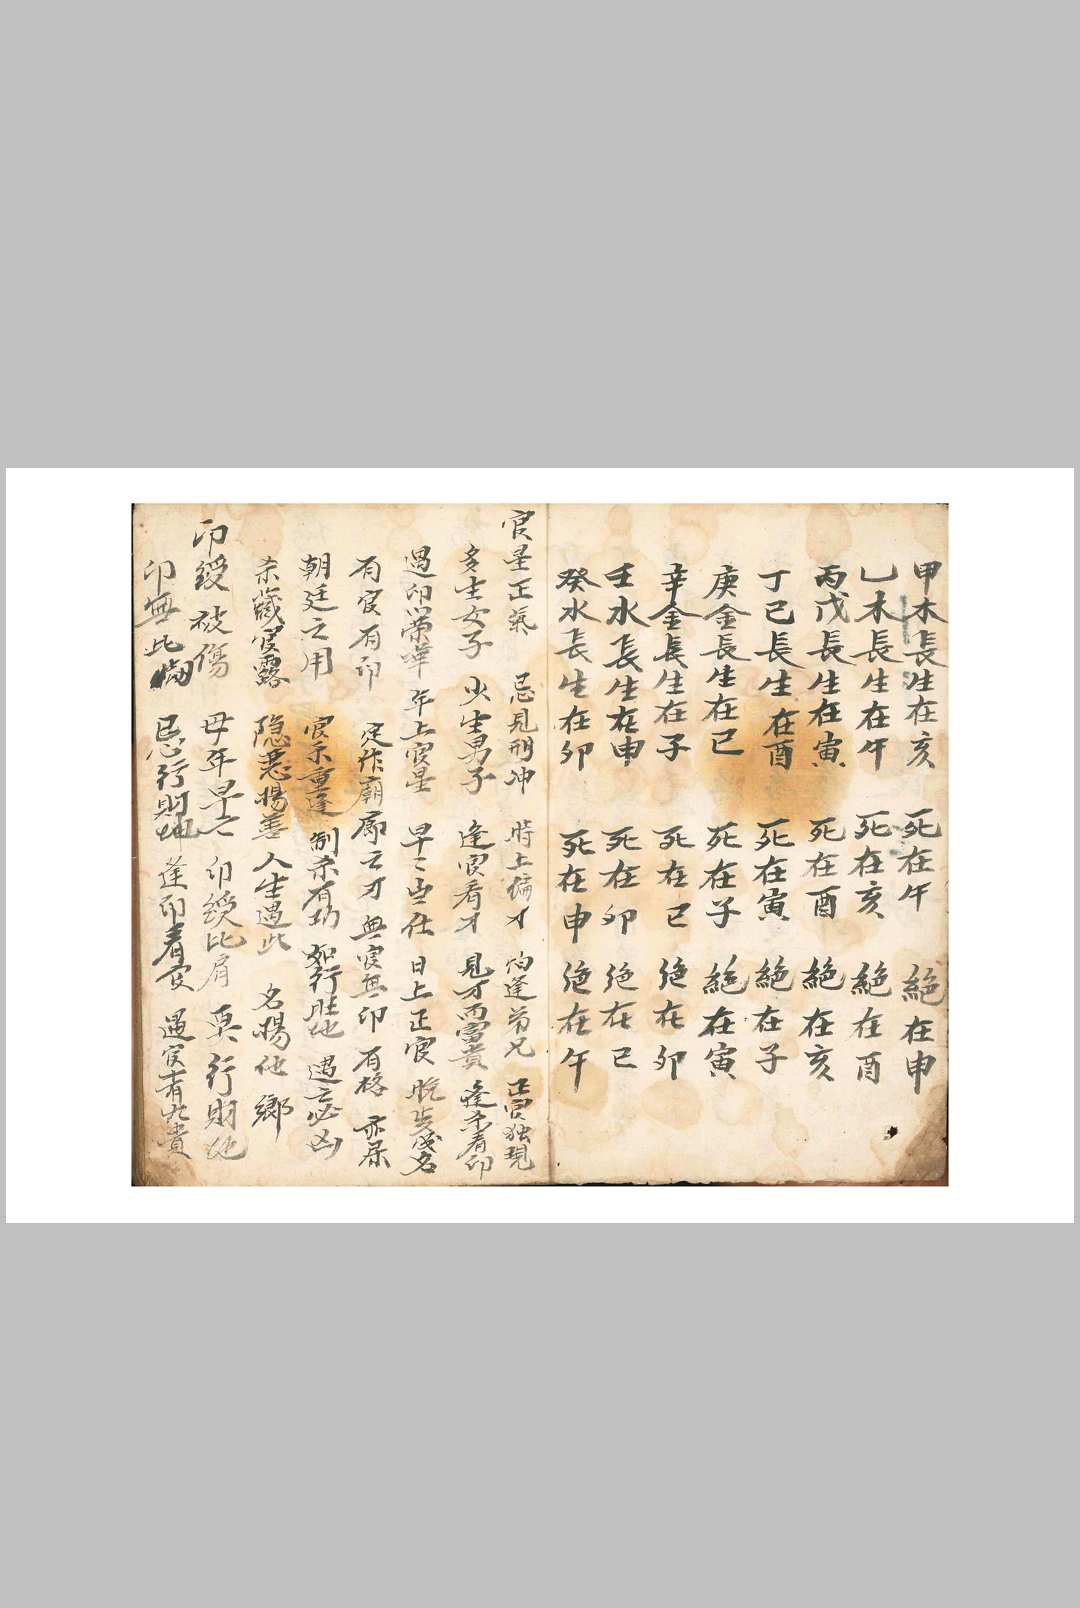 甲木長生在亥 死在午 絕在申
乙木長生在午 死在亥 絕在酉
丙戊長生在寅 死在酉 絕在亥
丁己長生在酉 死在寅 絕在子
庚金長生在巳 死在子 絕在寅
辛金長生在子 死在巳 絕在卯
壬水長生在申 死在卯 絕在巳
癸水長生在卯 死在申 絕在午
官星正氣 忌見刑冲 時上偏才 怕逢弟兄 正官独現
多生女子 少生男子 逢官看才 見才而富貴 逢杀看印
遇印荣華 年上官星 早々出仕 日上正官 成名
有官有印 定作廊庙之才 無官無印 有格 亦
朝廷之用 官杀重逢 制杀有功 如行 地 遇之必凶
杀藏官露 隐惡揚善 人生遇此 名揚他鄉
印綬被傷 母年早亡 印綬比肩 莫行財地
印無比 忌行財地 逢印看官 遇官有 貴